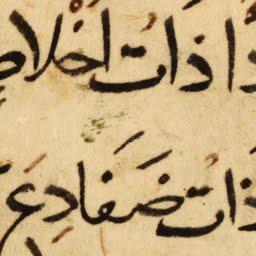 ذَاتُ اَخْلَا
ذَاتُ ضَفَادِعَ